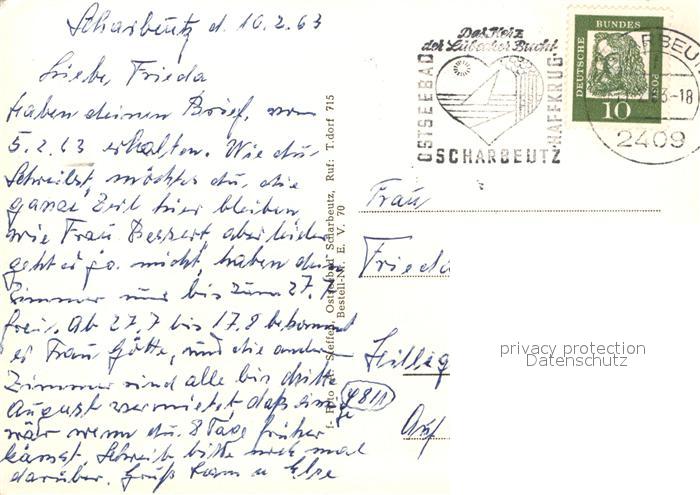 Scharbeutz d. 16.2.63
Liebe, Frieda
Haben deinen Brief, vom
5.2.63 erhalten. Wie du
schreibst, möchtes du, die
ganze Zeit hier bleiben,
wie Frau Bessert aber leider
geht es ja nicht, haben dein
Zimmer nur bis zum 27.7
frei. Ab 27.7 bis 17.8 bekommt
es Frau Götte, und die andern
Zimmer sind alle bis dritte
August vermietet, das einzige
wär wenn du 8 Tage früher
kämst. Schreib bitte noch mal
darüber. Gruß u Else
Foto Steffen, Ostseebad Scharbeutz, Ruf: T.dorf 715
Bestell-Nr. E. V. 70
Das Herz
der Lübecker Bucht
OSTSEEBAD
SCHARBEUTZ
HAFFKRUG
DEUTSCHE
BUNDES
POST
10
RBEU
3-18
2409
Frau
Frieda
Heilig
Auf
privacy protection
Datenschutz